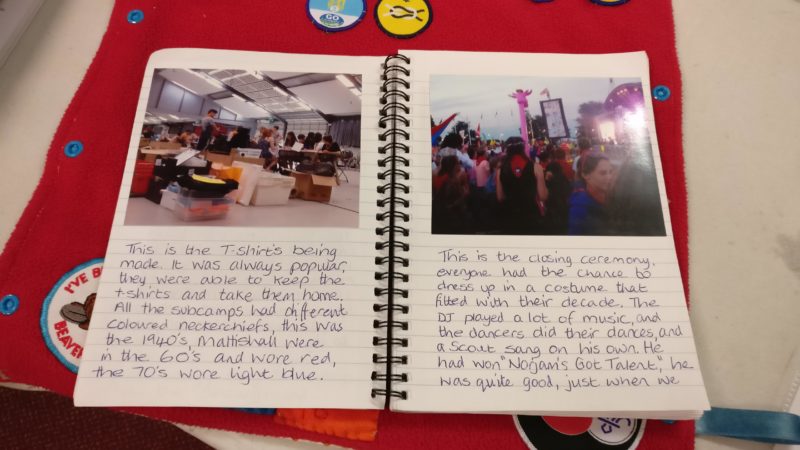 GO
This is the T-shirt's being
made. It was always popular,
they were able to keep the
t-shirts and take them home.
All the subcamps had different
coloured neckerchiefs, this was
the 1940's, Mattishall were
in the 60's and wore red,
the 70's wore light blue.
This is the closing ceremony.
everyone had the chance to
dress up in a costume that
fitted with their decade. The
DJ played a lot of music, and
the dancers did their dances, and
a Scout sang on his own. He
had won "Norjam's Got Talent," he
was quite good, just when we
I'VE BE
BEAVER